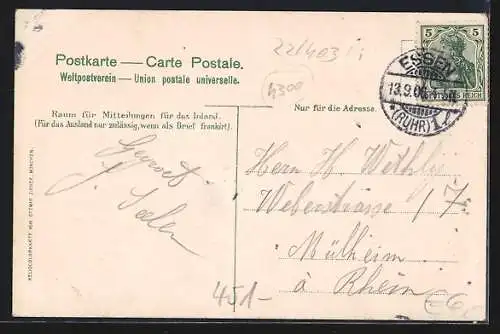 22/403
4300
5 5
DEUTSCHES REICH
ESSEN
13.9.06
* (RUHR) 1
Postkarte — Carte Postale.
Weltpostverein — Union postale universelle.
Raum für Mitteilungen für das Inland.
(Für das Ausland nur zulässig, wenn als Brief frankirt).
Nur für die Adresse.
Herrn H
Weberstrasse 17
Mülheim
a Rhein
451-